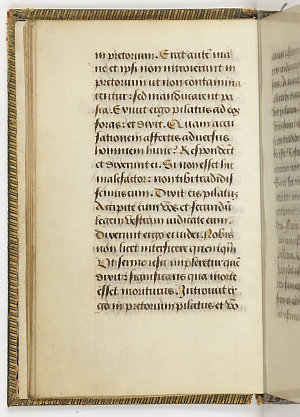 in pretorium. Erat autē ma
ne et ipsi non introierunt in
pretorium ut non contamina
rentur: sed manducarent pa
sca. Exivit ergo pilatus ad eos
foras: et dixit. Quam accu
sationem affertis adversus
hominem hunc? Responderūt
et dixerunt ei. Si non esset hic
malefactor: non tibi tradidis
semus eum. Dixit eis pilatus
Accipite eum vos et secundū
legem vestram iudicate eum.
Dixerunt ergo ei iudei. Nobis
non licet interficere quemquā
Ut sermo iesu impleretur quē
dixit: significans qua morte
esset moriturus. Introivit er
go in pretorium pilatus et vo